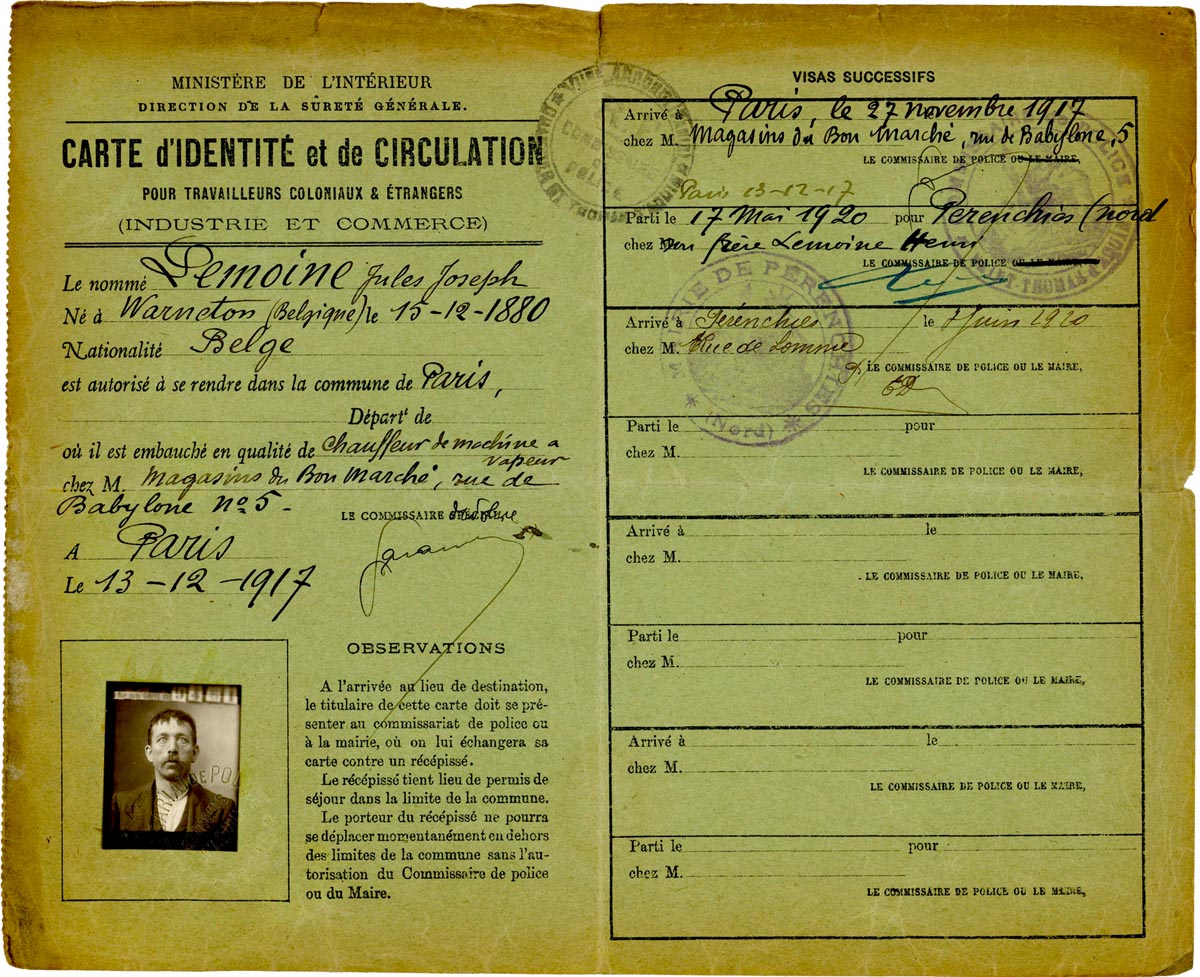 MINISTÈRE DE L'INTÉRIEUR
DIRECTION DE LA SÛRETÉ GÉNÉRALE.
CARTE d'IDENTITÉ et de CIRCULATION
POUR TRAVAILLEURS COLONIAUX & ÉTRANGERS
(INDUSTRIE ET COMMERCE)
Le nommé Lemoine Jules Joseph
Né à Warneton (Belgique) le 15-12-1880
Nationalité Belge
est autorisé à se rendre dans la commune de Paris,
Départt de
où il est embauché en qualité de chauffeur de machine a
vapeur
chez M. Magasins du Bon Marché, rue de
Babylone no 5 -
LE COMMISSAIRE
A Paris
Le 13-12-1917
OBSERVATIONS
A l'arrivée au lieu de destination,
le titulaire de cette carte doit se pré-
senter au commissariat de police ou
à la mairie, où on lui échangera sa
carte contre un récépissé.
Le récépissé tient lieu de permis de
séjour dans la limite de la commune.
Le porteur du récépissé ne pourra
se déplacer momentanément en dehors
des limites de la commune sans l'au-
torisation du Commissaire de police
ou du Maire.
VISAS SUCCESSIFS
Arrivé à Paris, le 27 novembre 1917
chez M. Magasins du Bon Marché, rue de Babylone, 5
LE COMMISSAIRE DE POLICE OU LE MAIRE,
Paris 13-12-17
Parti le 17 Mai 1920 pour Perenchies (nord
chez son frère Lemoine Henri
LE COMMISSAIRE DE POLICE OU LE MAIRE,
Arrivé à Pérenchies le Juin 1920
chez M. Rue de Lomme
LE COMMISSAIRE DE POLICE OU LE MAIRE,
MAIRIE DE PÉRENCHIES
(Nord)
Parti le pour
chez M.
LE COMMISSAIRE DE POLICE OU LE MAIRE,
Arrivé à le
chez M.
LE COMMISSAIRE DE POLICE OU LE MAIRE,
Parti le pour
chez M.
LE COMMISSAIRE DE POLICE OU LE MAIRE,
Arrivé à le
chez M.
LE COMMISSAIRE DE POLICE OU LE MAIRE,
Parti le pour
chez M.
LE COMMISSAIRE DE POLICE OU LE MAIRE,